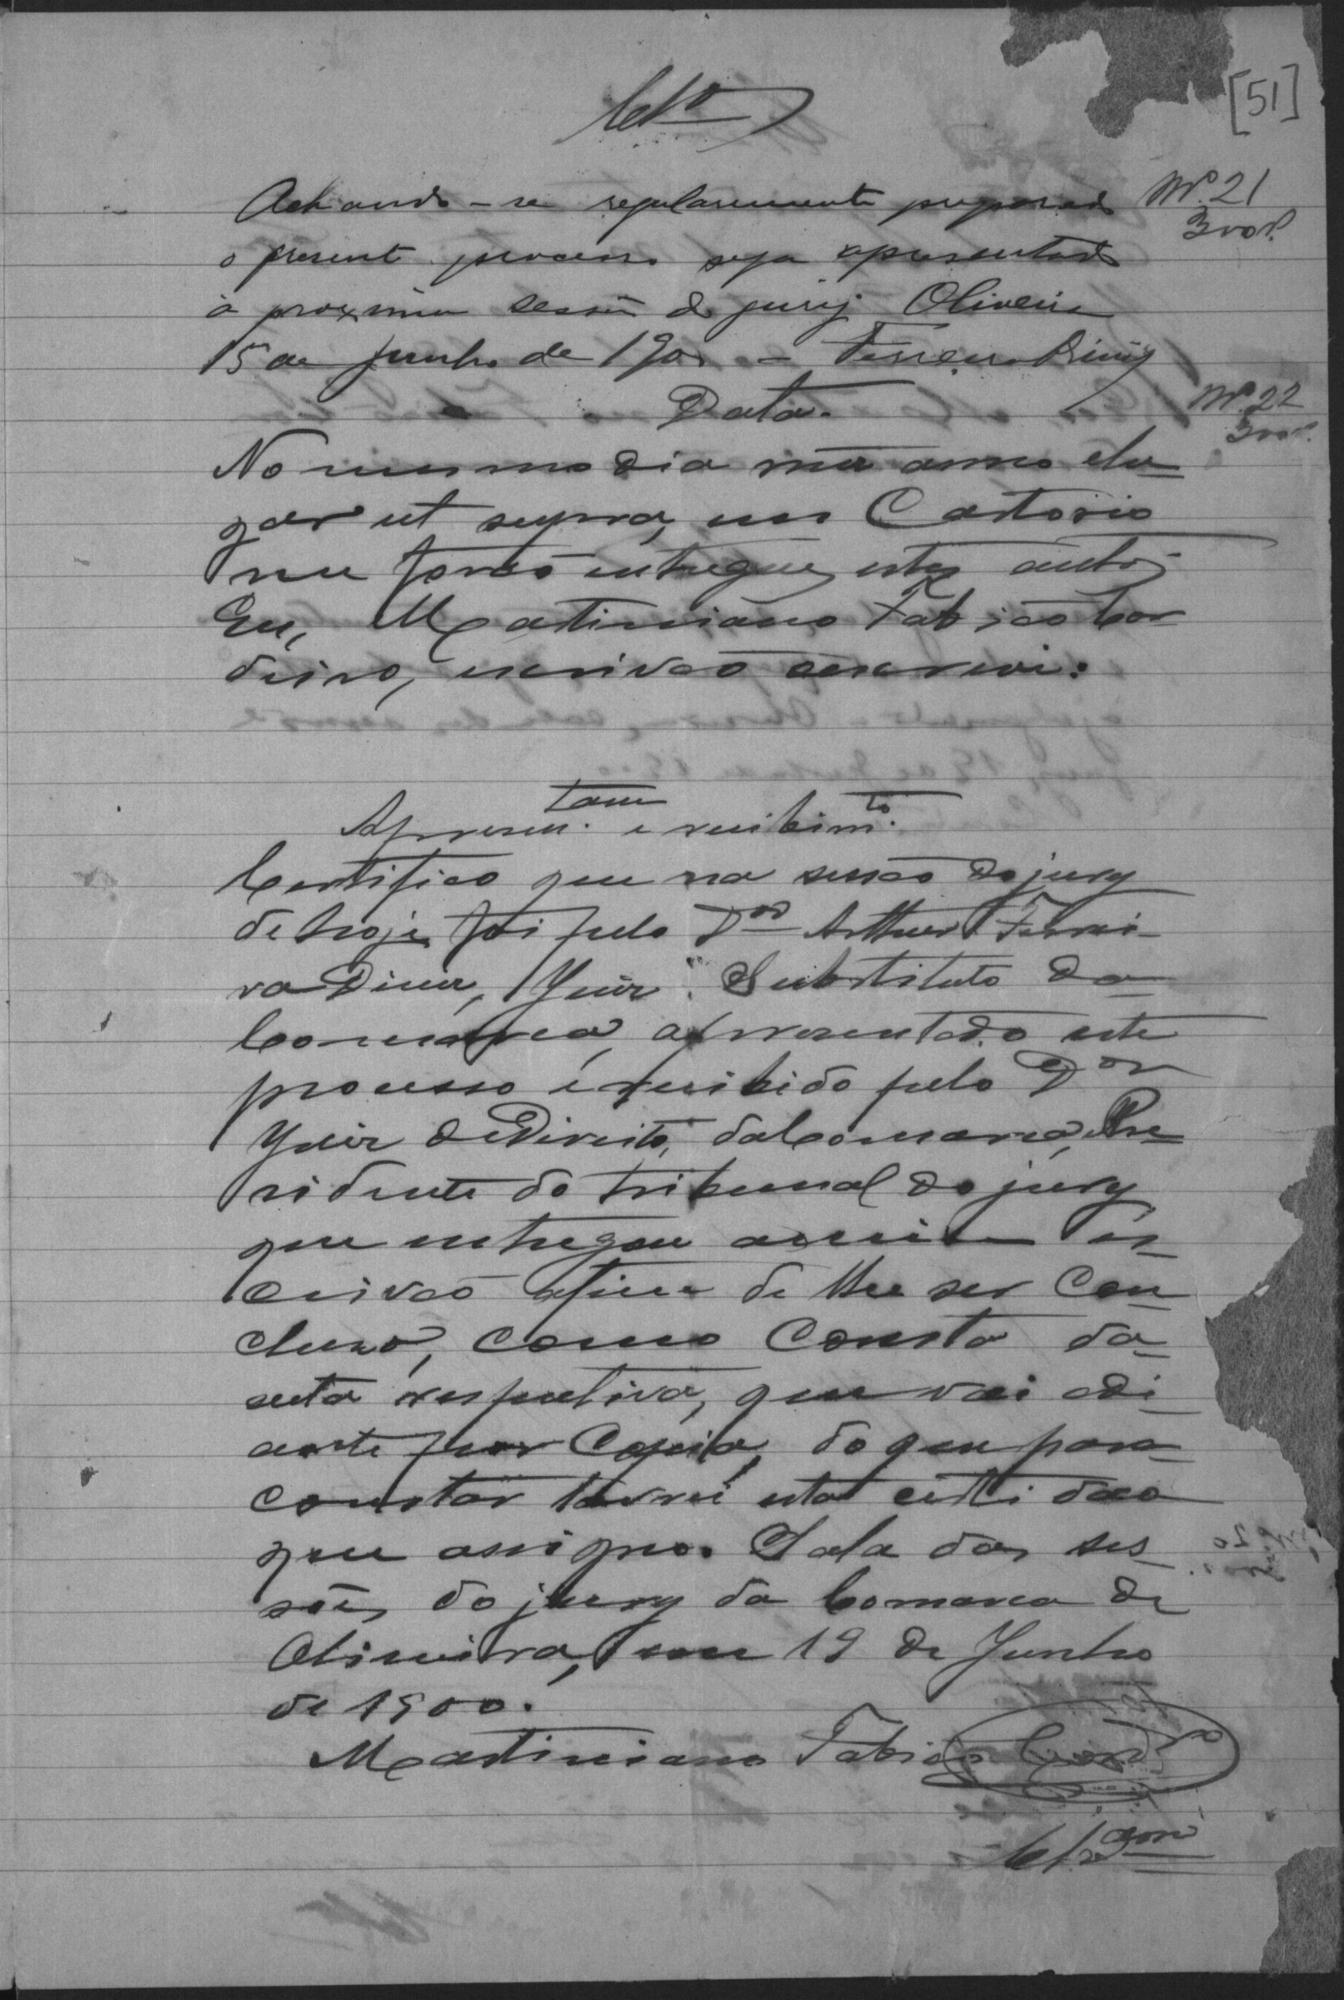 [51]
Cls.º
Achando-se regularmente preparado
Nº 21
300 rs.
o presente processo seja apresentado
á proxima sessão do jury. Oliveira
15 de Junho de 1900 – Ferreira Diniz
Data.
Nº 22
300 rs.
No mesmo dia mez anno e lu-
gar ut supra, em Cartorio
me forão entregues estes autos.
Eu, Martiniano Fabião Cor
deiro, escrivão escrevi.
Apresen.tam e recebim.to
Certifico que na sessão do jury
de hoje foi pelo Dor Arthur Ferrei-
ra Diniz, Juiz Substituto da
Comarca, apresentado este
processo e recebido pelo Dor
Juiz de Direito, da Comarca, Pre
sidente do tribunal do jury
que entregou a mim es-
crivão afim de lhe ser con-
cluso, como consta da
acta respectiva, que vai adi-
ante por Copia, do que para
constar lavrei esta certidão
que assigno. Sala das ses-
sões do jury da Comarca de
Oliveira, em 19 de Junho
de 1900.
Martiniano Fabião Cordro